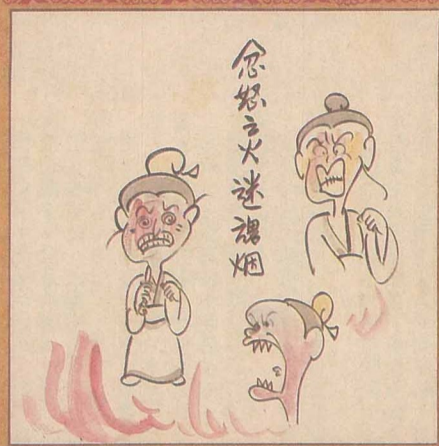 忿怒之火迷魂烟